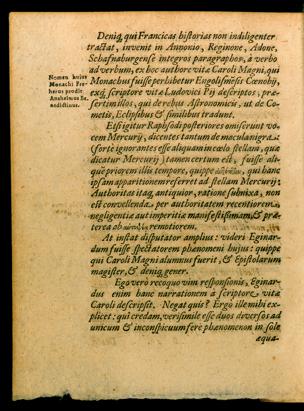 Deniq, qui Francicas historias non indiligenter
tractat, invenit in Annonio, Reginone, Adone,
Schafnaburgense integros paragraphos, à verbo
ad verbum, ex hoc authore vitæ Caroli Magni, qui
Nomen huius
Monachi
heros prodit
Anshelmus
nedictinus.
Monachus fuisse perhibetur Engolismensis Cœnobij,
exq́; scriptore vitæ Ludovici Pij descriptos, præ-
sertim illos, qui de rebus Astronomicis, ut de Co-
metis, Eclipsibus & similibus tradunt.
Etsi igitur Rapsodi posteriores omiserunt vo-
cem Mercurij, dicentes tantum de macula nigra
(fortè ignorantes esse aliquam in cœlo stellam, quæ
dicatur Mercurij) tamen certum est, fuisse ali-
quë priorem illis tempore, quippe qui hanc
ipsam apparitionem referret ad stellam Mercurij:
Authoritas itaq, antiquior, ratione subnixa, non
est convellenda per authoritatem recentiorem
negligentiæ aut imperitiæ manifestissimam, & præ-
terea ab remotiorem.
At instat disputator amplius: videri Eginar-
dum fuisse spectatorem phænomeni hujus: quippe
qui Caroli Magni alumnus fuerit, & Epistolarum
magister, & deniq, gener.
Ego vero recoquo vim responsionis, Eginar-
dus enim hanc narrationem à scriptore vitæ
Caroli descripsit. Negat quis? Ergò ille mihi ex-
plicet: qui credam, verisimile esse duos diversos ad
unicum & inconspicuum ferè phænomenon in sole
æqua-